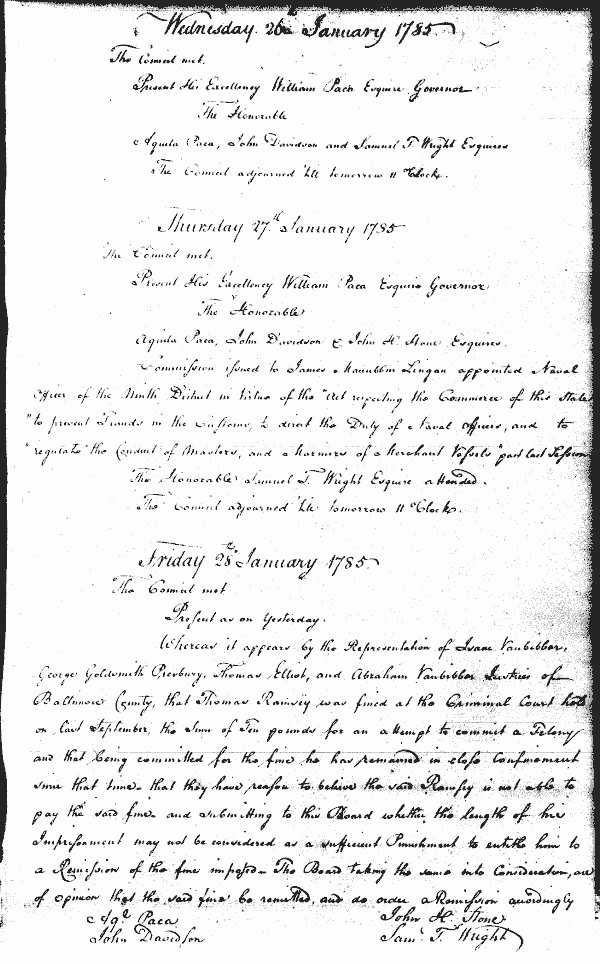 Wednesday 26th January 1785
The Council met.
Present His Excellency William Paca Esquire Governor
The Honorable
Aquila Paca, John Davidson and Samuel T. Wright Esquires
The Council adjourned 'till tomorrow 11 oClock.
Thursday 27th January 1785
The Council met.
Present His Excellency William Paca Esquire Governor
The Honorable
Aquila Paca, John Davidson & John H. Stone Esquires.
Commission issued to James Maccubbin Lingan appointed Naval
Officer of the Ninth District in virtue of the "Act respecting the Commerce of this State
"to prevent Frauds in the Customs, to direct the Duty of Naval Officers, and to
"regulate the Conduct of Masters, and Mariners of Merchant Vessels" past last Session
The Honorable Samuel T. Wright Esquire attended.
The Council adjourned 'till tomorrow 11 oClock.
Friday 28th January 1785
The Council met
Present as on Yesterday.
Whereas it appears by the Representation of Isaac Vanbibber,
George Goldsmith Presbury, Thomas Elliot, and Abraham Vanbibber Justices of
Baltimore County, that Thomas Ramsey was fined at the Criminal Court held
on last September, the Sum of Ten pounds for an attempt to commit a Felony
and that being committed for the fine he has remained in close Confinement
since that time - that they have reason to believe the said Ramsey is not able to
pay the said fine - and submitting to this Board whether the length of his
Imprisonment may not be considered as a sufficient Punishment to entitle him to
a Remission of the fine imposed - The Board taking the same into Consideration, are
of opinion that the said fine be remitted, and do order a Remission accordingly
Aqa Paca
John H. Stone
John Davidson
Saml. T. Wright